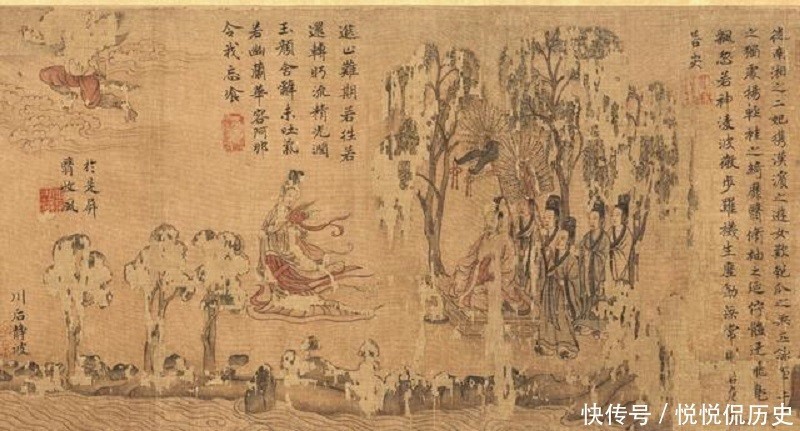 從南湘之二妃攜漢濱之遊女歎匏瓜之無匹詠
之獨處揚輕袿之綺靡翳脩袖之延佇體迅飛鳧
飄忽若神凌波微步羅襪生塵動無常
若安
進止難期若往若
還轉眄流精光潤
玉顏含辭未吐氣
若幽蘭華容阿那
令我忘飡
於是屏
翳收風
川后靜波
快传号 / 悦悦侃历史